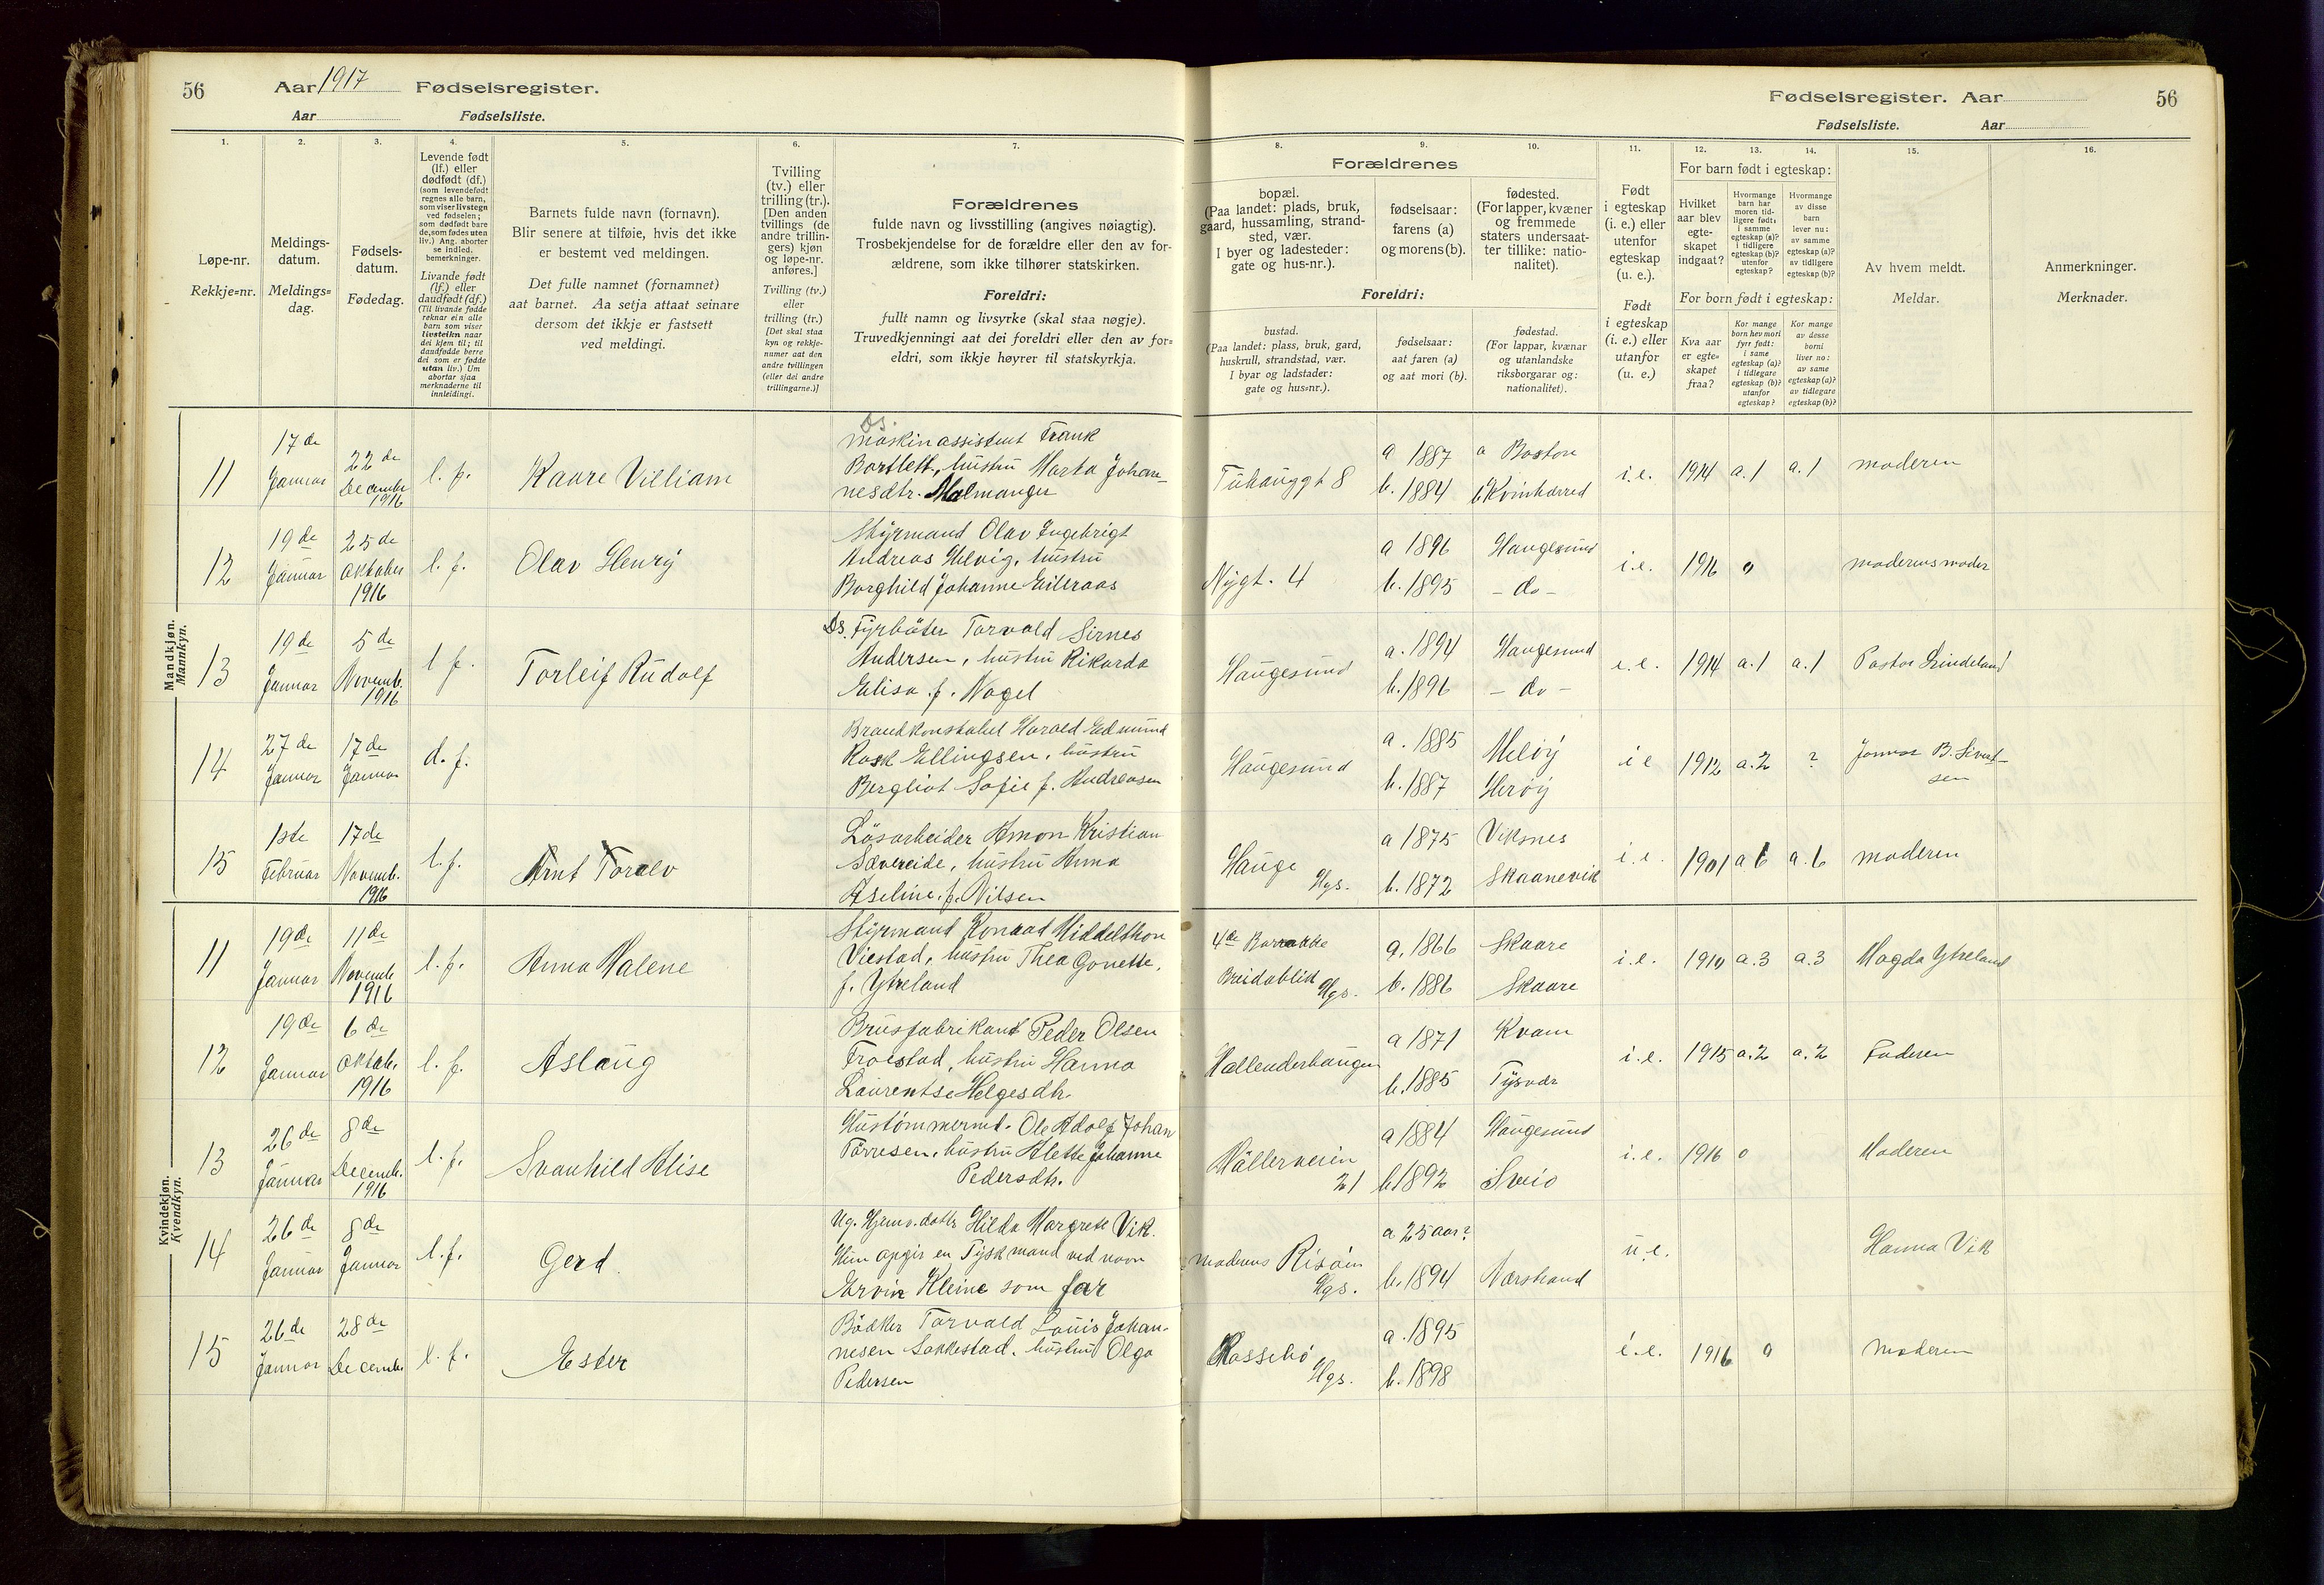 56 Aar 1917 Fødselsregister.
Aar Fødselsliste.
Fødselsregister. Aar 56
Fødselsliste. Aar
1. 2. 3. 4. 5. 6. 7. 8. 9. 10. 11. 12. 13. 14. 15. 16.
Løpe-nr.
Rekkje=nr.
Meldings-
datum.
Meldings=
dag.
Fødsels-
datum.
Fødedag.
Levende født
(lf.) eller
dødfødt (df.)
(som levendefødt
regnes alle barn,
som viser livstegn
ved fødselen;
som dødfødt bare
de, som fødes uten
liv.) Ang. aborter
se indled.
bemerkninger.
Livande født
(lf.) eller
daudfødt (df.)
(Til livande fødde
reknar ein alle
barn som viser
livsteikn naar
dei kjem til; til
daudfødde berre
dei som er fødde
utan liv.) Um
abortar sjaa
merknaderne til
innleidingi.
Barnets fulde navn (fornavn).
Blir senere at tilføie, hvis det ikke
er bestemt ved meldingen.
Det fulle namnet (fornamnet)
aat barnet. Aa setja attaat seinare
dersom det ikkje er fastsett
ved meldingi.
Tvilling
(tv.) eller
trilling (tr.).
[Den anden
tvillings (de
andre trillin-
gers) kjøn
og løpe-nr.
anføres.]
Tvilling (tv.)
eller
trilling (tr.)
[Det skal staa
kyn og rekkje-
numer aat den
andre tvillingen
(eller dei andre
trillingarne.)]
Forældrenes
fulde navn og livsstilling (angives nøiagtig).
Trosbekjendelse for de forældre eller den av for-
ældrene, som ikke tilhører statskirken.
Foreldri:
fullt namn og livsyrke (skal staa nøgje).
Truvedkjenningi aat dei foreldri eller den av for=
eldri, som ikkje høyrer til statskyrkja.
Forældrenes
bopæl.
(Paa landet: plads, bruk,
gaard, hussamling, strand-
sted, vær.
I byer og ladesteder:
gate og hus-nr.).
fødselsaar:
farens (a)
og morens (b).
fødested.
(For lapper, kvæner
og fremmede
staters undersaat-
ter tillike: natio-
nalitet).
Foreldri:
bustad.
(Paa landet: plass, bruk, gard,
huskrull, strandstad, vær.
I byar og ladstader:
gate og hus=nr.).
fødselsaar:
aat faren (a)
og aat mori (b).
fødestad.
(For lappar, kvænar
og utanlandske
riksborgarar og:
nationalitet).
Født
i egteskap
(i. e.) eller
utenfor
egteskap
(u. e.).
Født
i egteskap
(i. e.) eller
utanfor
(u. e.)
For barn født i egteskap:
Hvilket
aar blev
egte-
skapet
indgaat?
Hvormange
barn har
moren tid-
ligere født:
i samme
egteskap (a)?
i tidligere
egteskap (b)?
utenfor
egteskap?
Hvormange
av disse
barn
lever nu:
av samme
egteskap (a)?
av tidligere
egteskap (b)?
For born født i egteskap:
Kva aar
er egte=
skapet
fraa?
Kor mange
born hev mori
fyrr født:
i same
egteskap (a)?
i tidlegare
egteskap (b)?
utanfor
egteskap?
Kor mange
av desse
borni
liver no:
av same
egteskap (a)?
av tidlegare
egteskap (b)?
Av hvem meldt.
Meldar.
Anmerkninger.
Merknader.
Mandkjøn.
Mannkyn.
11 17de Januar 22de Decembr 1916 l. f. Kaare Villiam
Ds.
Maskinassistent Frank
Bartlett, hustru Marta Johan-
nesdtr. Malmanger
Tuhauggt 8 a 1887 b. 1884 a Boston b Kvinherred i.e. 1914 a. 1 a. 1 moderen
12 19de Januar 25de Oktober 1916 l. f. Olav Henry
Styrmand Olav Ingebrigt
Andreas Helvig, hustru
Borghild Johanne Eileraas
Nygt. 4 a 1896 b. 1895 Haugesund - do - i.e. 1916 0 moderens moder
13 19de Januar 5de Novemb. 1916 l f. Torleif Rudolf
Ds. Fyrbøter Torvald Sirnes
Andersen, hustru Rikarda
Elisa f. Nagel
Haugesund a. 1894 b. 1896 Haugesund - do - i.e. 1914 a. 1 a. 1 Pastor Lindeland
14 27de Januar 17de Januar d. f.
Brandkonstabel Harald Edmund
Rask Ellingsen, hustru
Bergliot Sofie f. Andreasen
Haugesund a. 1885 b. 1887 Meløy Herøy i e 1912 a. 2 ? Jonna B. Sivert-
sen
15 1ste Februar 17de Novemb. 1916 l. f. Arnt Toralv
Løsarbeider Amon Kristian
Sævereide, hustru Anna
Aseline f. Nilsen
Hauge Hgs. a 1875 b. 1872 Viksnes Skaanevik i. e. 1901 a 6 a. 6 moderen
Kvindekjøn.
Kvendkyn.
11 19de Januar 11de Novemb 1916 l. f. Anna Malene
Styrmand Konrad Middelthon
Viestad, hustru Thea Gonette,
f. Ytreland
4de Barrakke
Breidablik Hgs. a. 1866 b. 1886 Skaare Skaare i.e. 1910 a. 3 a. 3 Magda Ytreland
12 19de Januar 6de Oktob. 1916 l. f. Aslaug
Brusfabrikant Peder Olsen
Froestad, hustru Hanna
Laurentse Helgesdtr.
Hallenderhaugen a 1871 b. 1885 Kvam Tysvær i.e. 1915 a. 2 a. 2 Faderen
13 26de Januar 8de Decemb. 1916 l. f. Svanhild Elise
Hustømmermd. Ole Adolf Johan
Tørresen, hustru Alette Johanne
Pedersdtr.
Møllerveien 21 a 1884 b 1892 Haugesund Sveio i.e. 1916 0 Moderen
14 26de Januar 8de Januar l. f. Gerd
Ug. Hjemv. datter Hilda Margrete Vik.
Hun opgir en Tysk mand ved navn
Ervin Kleine som far
moderens Risøin Hgs. a 25 aar? b. 1894 Nærstrand u.e. Hanna Vik
15 26de Januar 28de Decembr l. f. Ester
Bødker Torvald Louis Johan-
nesen Sakkestad, hustru Olga
Pedersen
Rossebø Hgs. a. 1895 b. 1898 i.e. 1916 0 Moderen